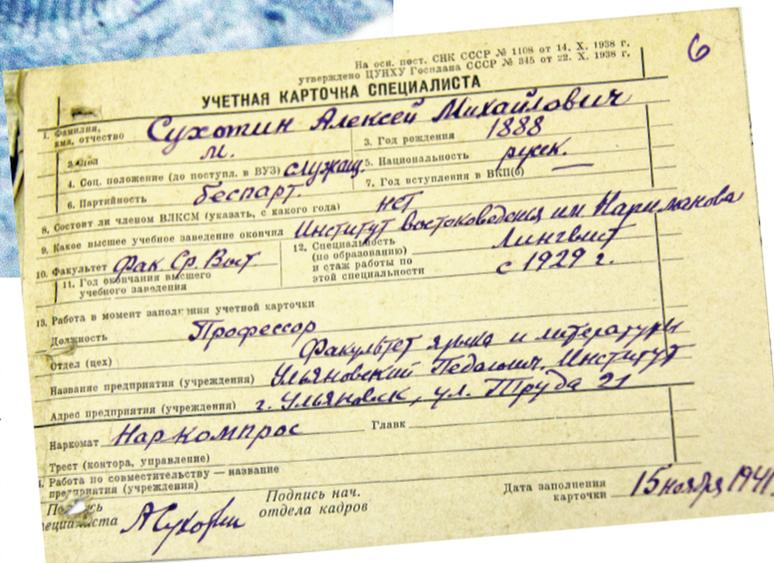 6
На осн. пост. СНК СССР № 1108 от 14. X. 1938 г.
утверждено ЦУНХУ Госплана СССР № 345 от 22. X. 1938 г.
УЧЕТНАЯ КАРТОЧКА СПЕЦИАЛИСТА
1. Фамилия, имя, отчество Сухотин Алексей Михайлович
2. Пол м. 3. Год рождения 1888
4. Соц. положение (до поступл. в ВУЗ) служащ. 5. Национальность русск.
6. Партийность беспарт. 7. Год вступления в ВКП(б) —
8. Состоит ли членом ВЛКСМ (указать, с какого года) нет
9. Какое высшее учебное заведение окончил Институт востоковедения им Нариманова
10. Факультет Фак. Ср. Вост. 12. Специальность (по образованию) и стаж работы по этой специальности Лингвист с 1929 г.
11. Год окончания высшего учебного заведения
13. Работа в момент заполнения учетной карточки
Должность Профессор
Отдел (цех) Факультет языка и литературы
Название предприятия (учреждения) Ульяновский Педагогич. Институт
Адрес предприятия (учреждения) г. Ульяновск, ул. Труда 21
Наркомат Наркомпрос Главк
Трест (контора, управление)
Работа по совместительству — название
предприятия (учреждения)
Подпись специалиста АСухотин Подпись нач. отдела кадров Дата заполнения карточки 15 ноября 1941